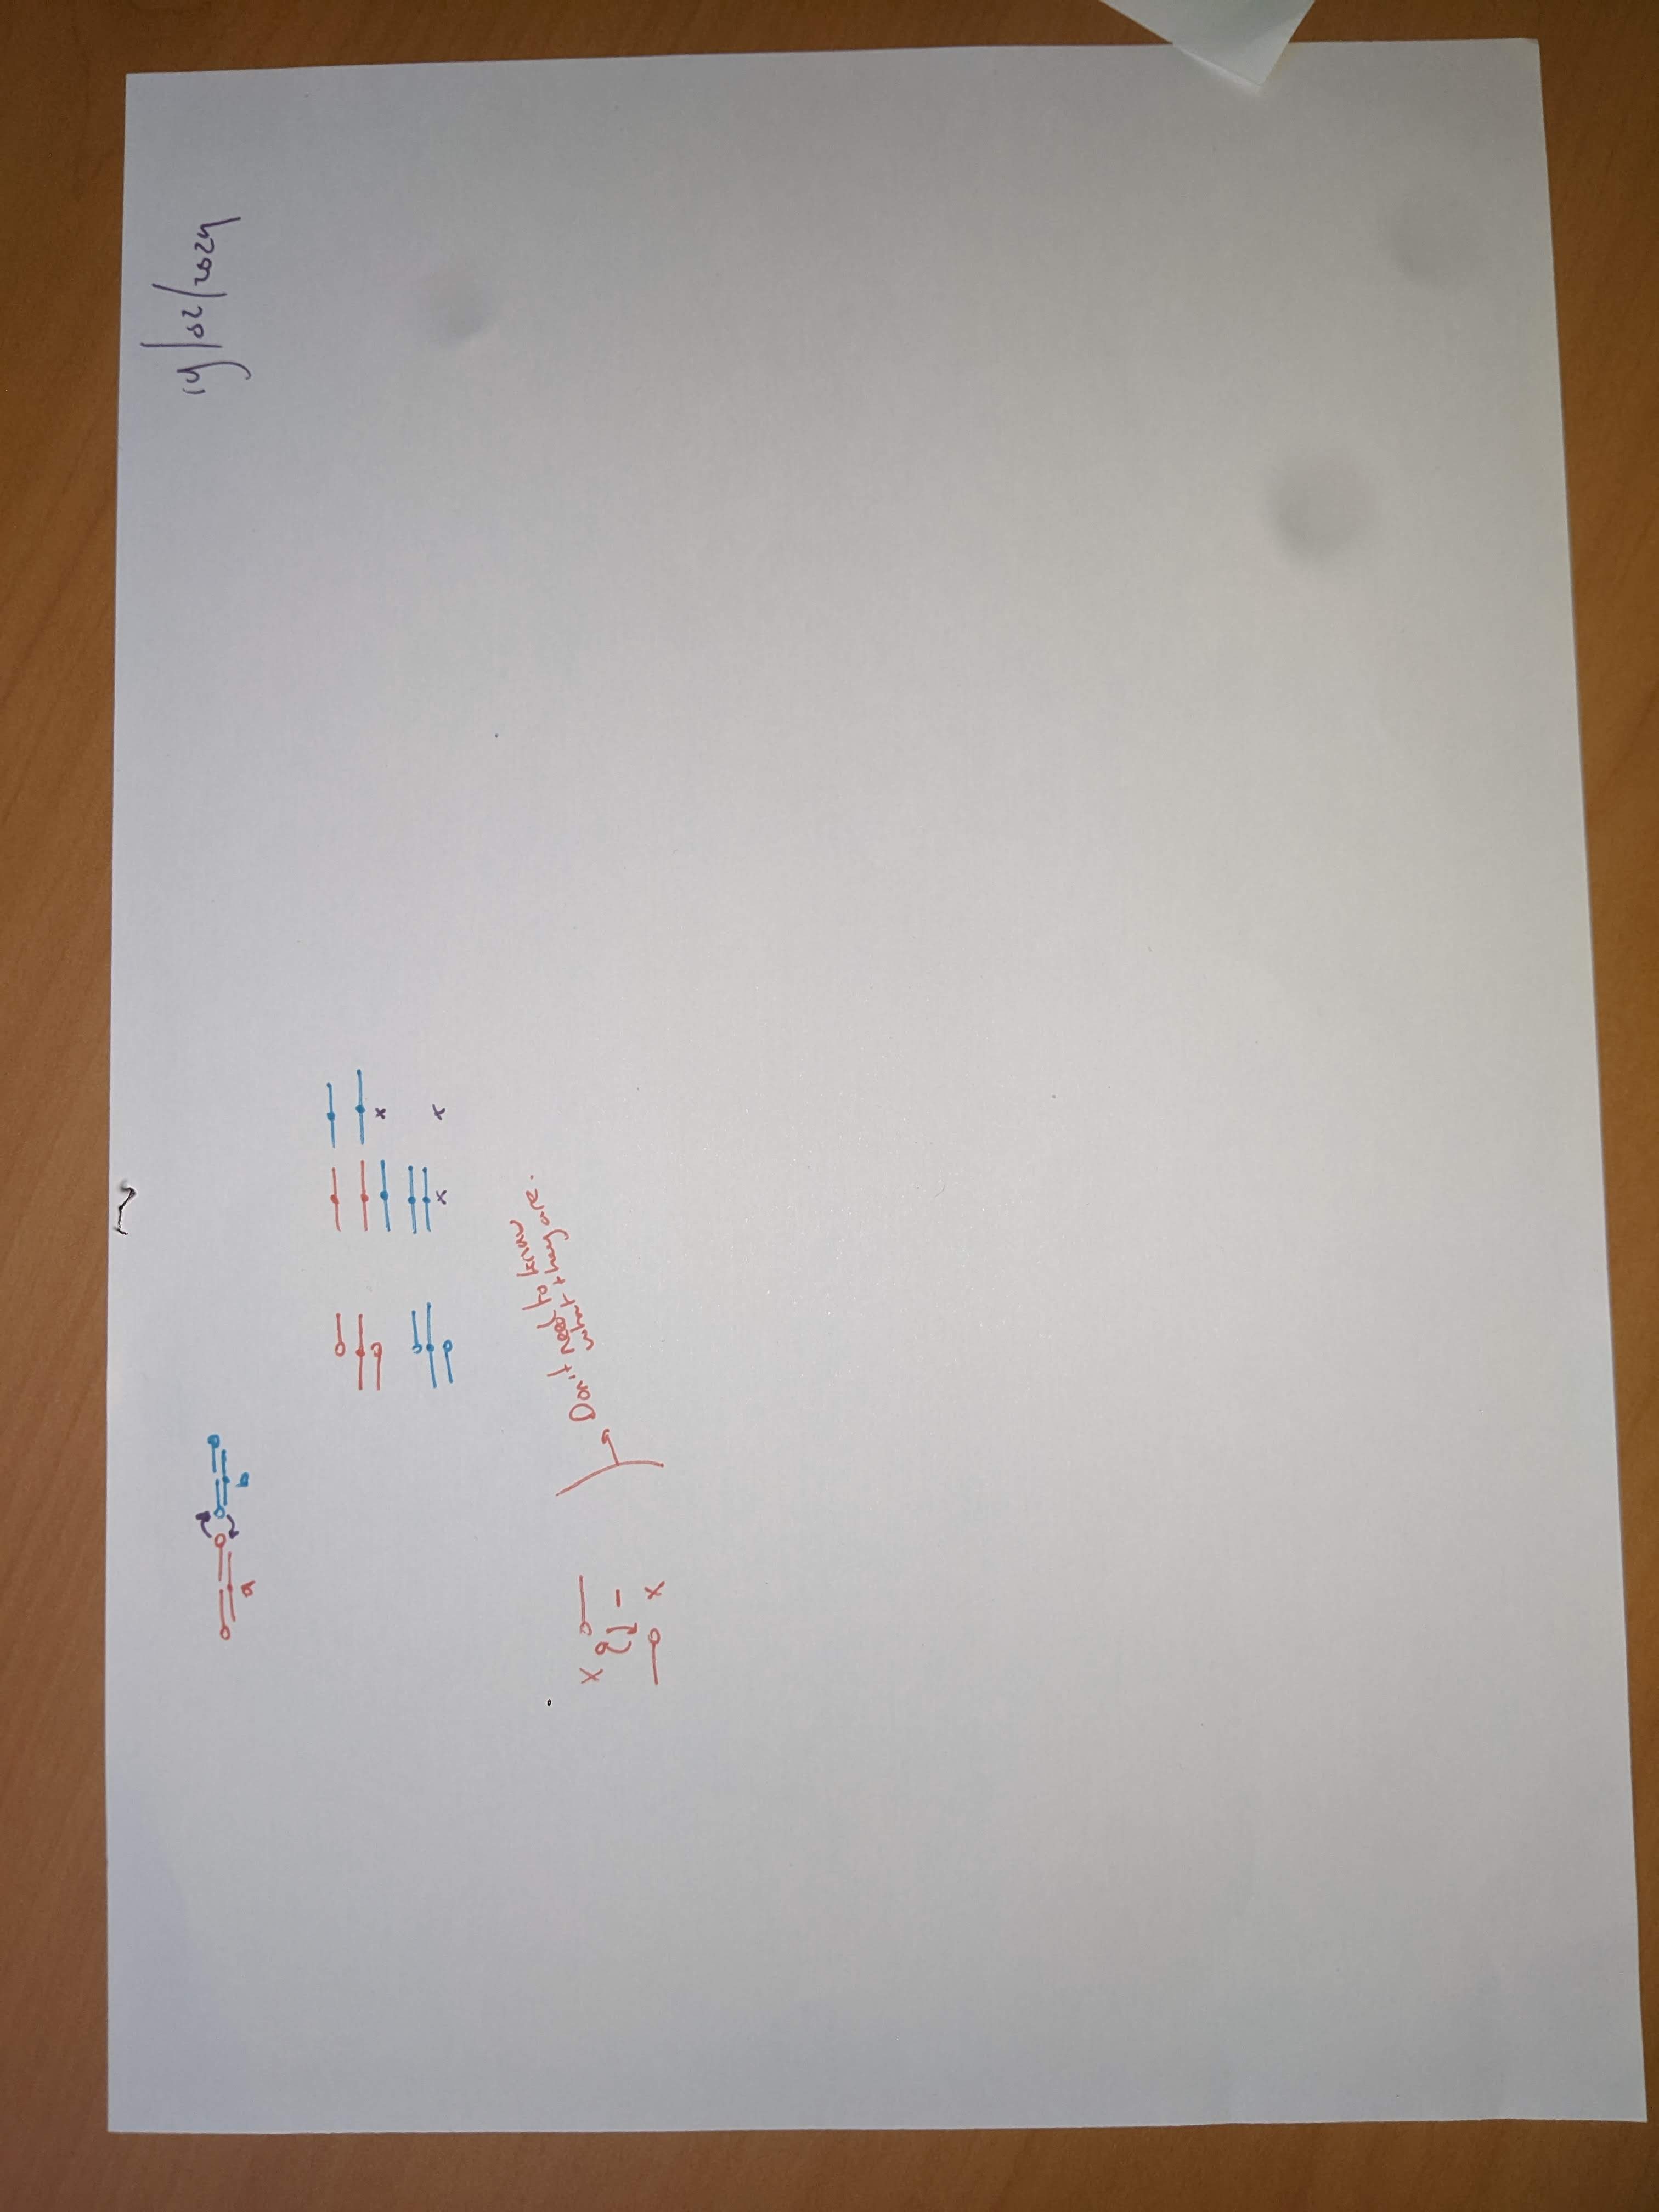 14/02/2024
a
b
x
x x
Don't need to know
what they are.
x
x